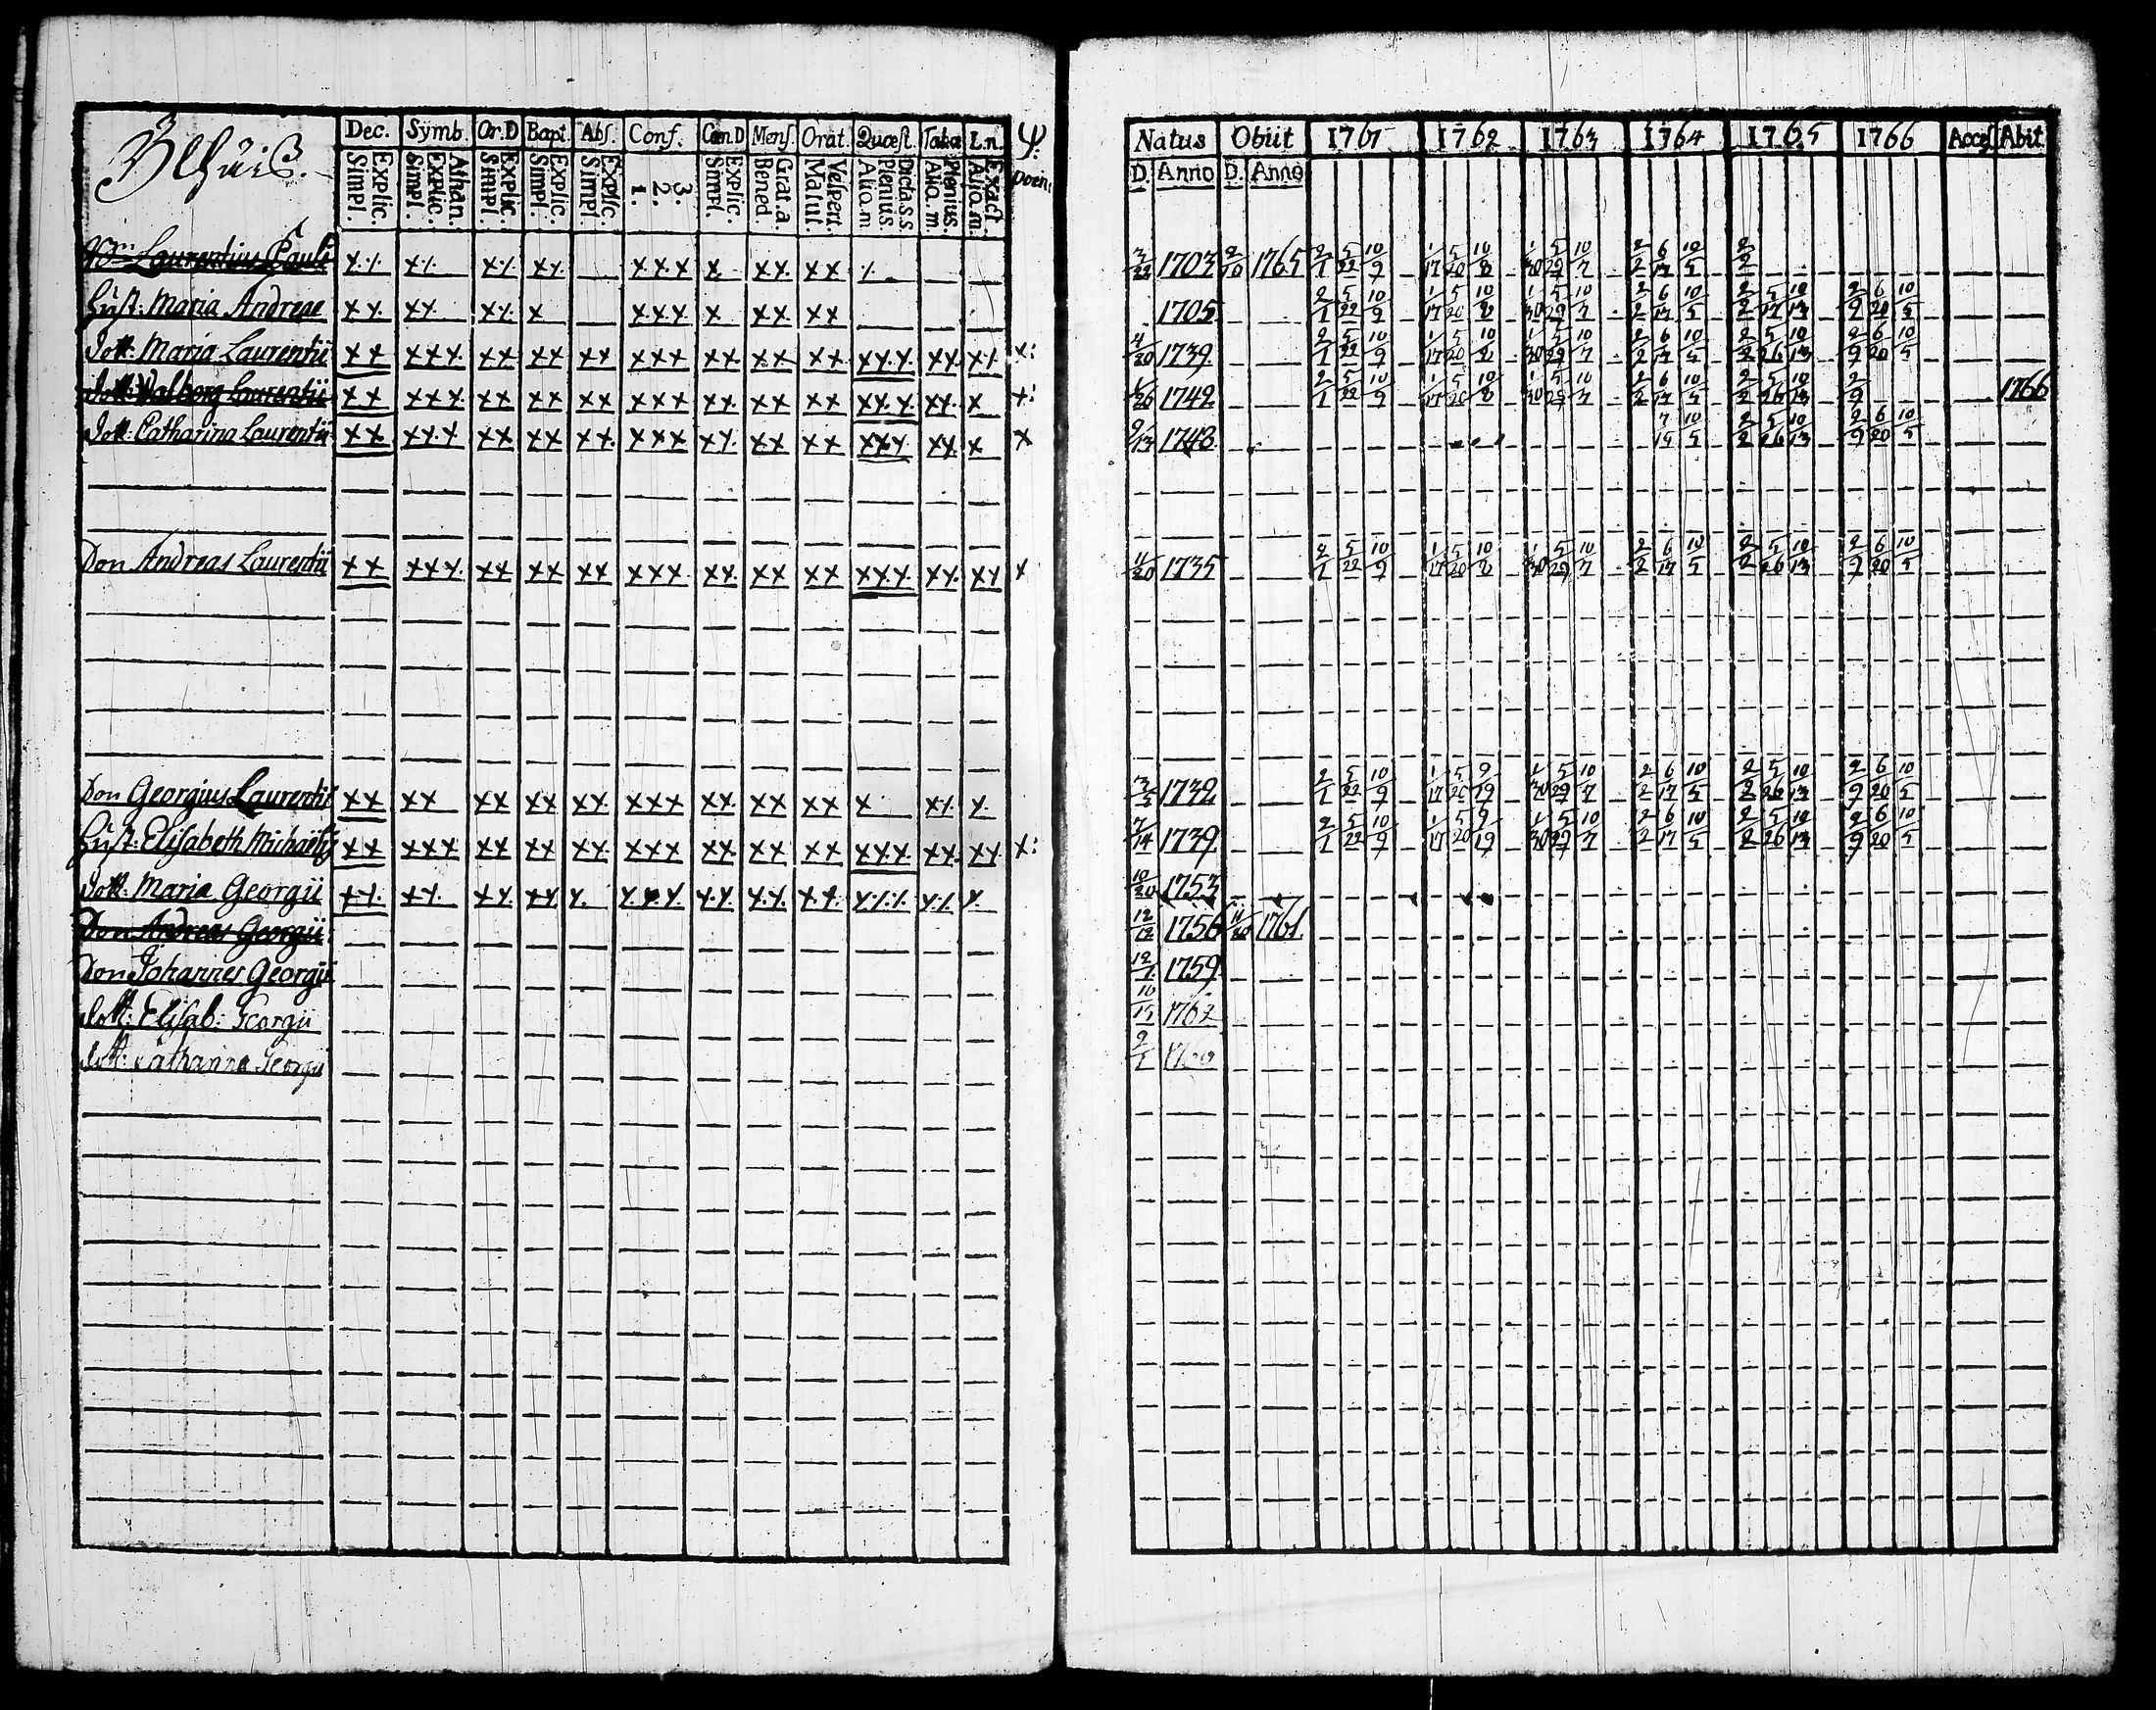 Dec. Symb. Or.D Bapt. Abs. Conf. Cœn.D Mens. Orat. Quæst. Tabæ L.n. Ψ.
Explic. Simpl. Athan. Explic. Simpl. Explic. Simpl. Explic. Simpl. Explic. Simpl. 3. 2. 1. Explic. Simpl. Grat.a. Bened. Vespert. Matut. Dicta s.s Plenius. Alio.m Plenius. Alio.m. Exact. Alio.m.
Natus Obiit 1761 1762 1763 1764 1765 1766 Acces Abit
D. Anno D. Anno
Laurentius Pauli x x x x x x x x x x x x x x x x x 3/22 1703 2/10 1765 2/1 5/22 10/9 1/17 5/20 10/2 1/30 5/29 10/7 2/2 6/17 10/5 2/2
Hust. Maria Andreae x x x x x x x x x x x x x x x 1705 2/1 5/22 10/9 1/17 5/20 10/2 1/30 5/29 10/7 2/2 6/17 10/5 2/2 5/17 10/13 2/9 6/20 10/5
Dott. Maria Laurentii x x x x x x x x x x x x x x x x x x x x x x x x x x x x x: 4/20 1739 2/1 5/22 10/9 1/17 5/20 10/2 1/30 5/29 10/7 2/2 6/17 10/5 2/2 5/26 10/13 2/9 6/20 10/5
Dott. Walborg Laurentii x x x x x x x x x x x x x x x x x x x x x x x x x x x x: 1/26 1742 2/1 5/22 10/9 1/17 5/20 10/2 1/30 5/29 10/7 2/2 6/17 10/5 2/2 5/26 10/13 2/9 1766
Dott. Catharina Laurentii x x x x x x x x x x x x x x x x x x x x x x x x x x x x 9/13 1748 7/15 10/5 2/2 5/26 10/13 2/9 6/20 10/5
Don Andreas Laurentii x x x x x x x x x x x x x x x x x x x x x x x x x x x x x 11/20 1735 2/1 5/22 10/9 1/17 5/20 10/2 1/30 5/29 10/7 2/2 6/17 10/5 2/2 5/26 10/13 2/9 6/20 10/5
Don Georgius Laurentii x x x x x x x x x x x x x x x x x x x x x x x 3/5 1732 2/1 5/22 10/9 1/17 5/20 9/19 1/30 5/29 10/7 2/2 6/17 10/5 2/2 5/26 10/13 2/9 6/20 10/5
Hust. Elisabeth Michaëlis x x x x x x x x x x x x x x x x x x x x x x x x x x x x x: 7/14 1739 2/1 5/22 10/9 1/17 5/20 9/19 1/30 5/29 10/7 2/2 6/17 10/5 2/2 5/26 10/13 2/9 6/20 10/5
Dott. Maria Georgii x x x x x x x x x x x x x x x x x x x x x x x x 10/20 1753
Don Andreas Georgii 12/12 1756 11/20 1761
Don Johannes Georgii 12/1 1759
dott: Elisab: Georgii 1762
dott: Catharina Georgii